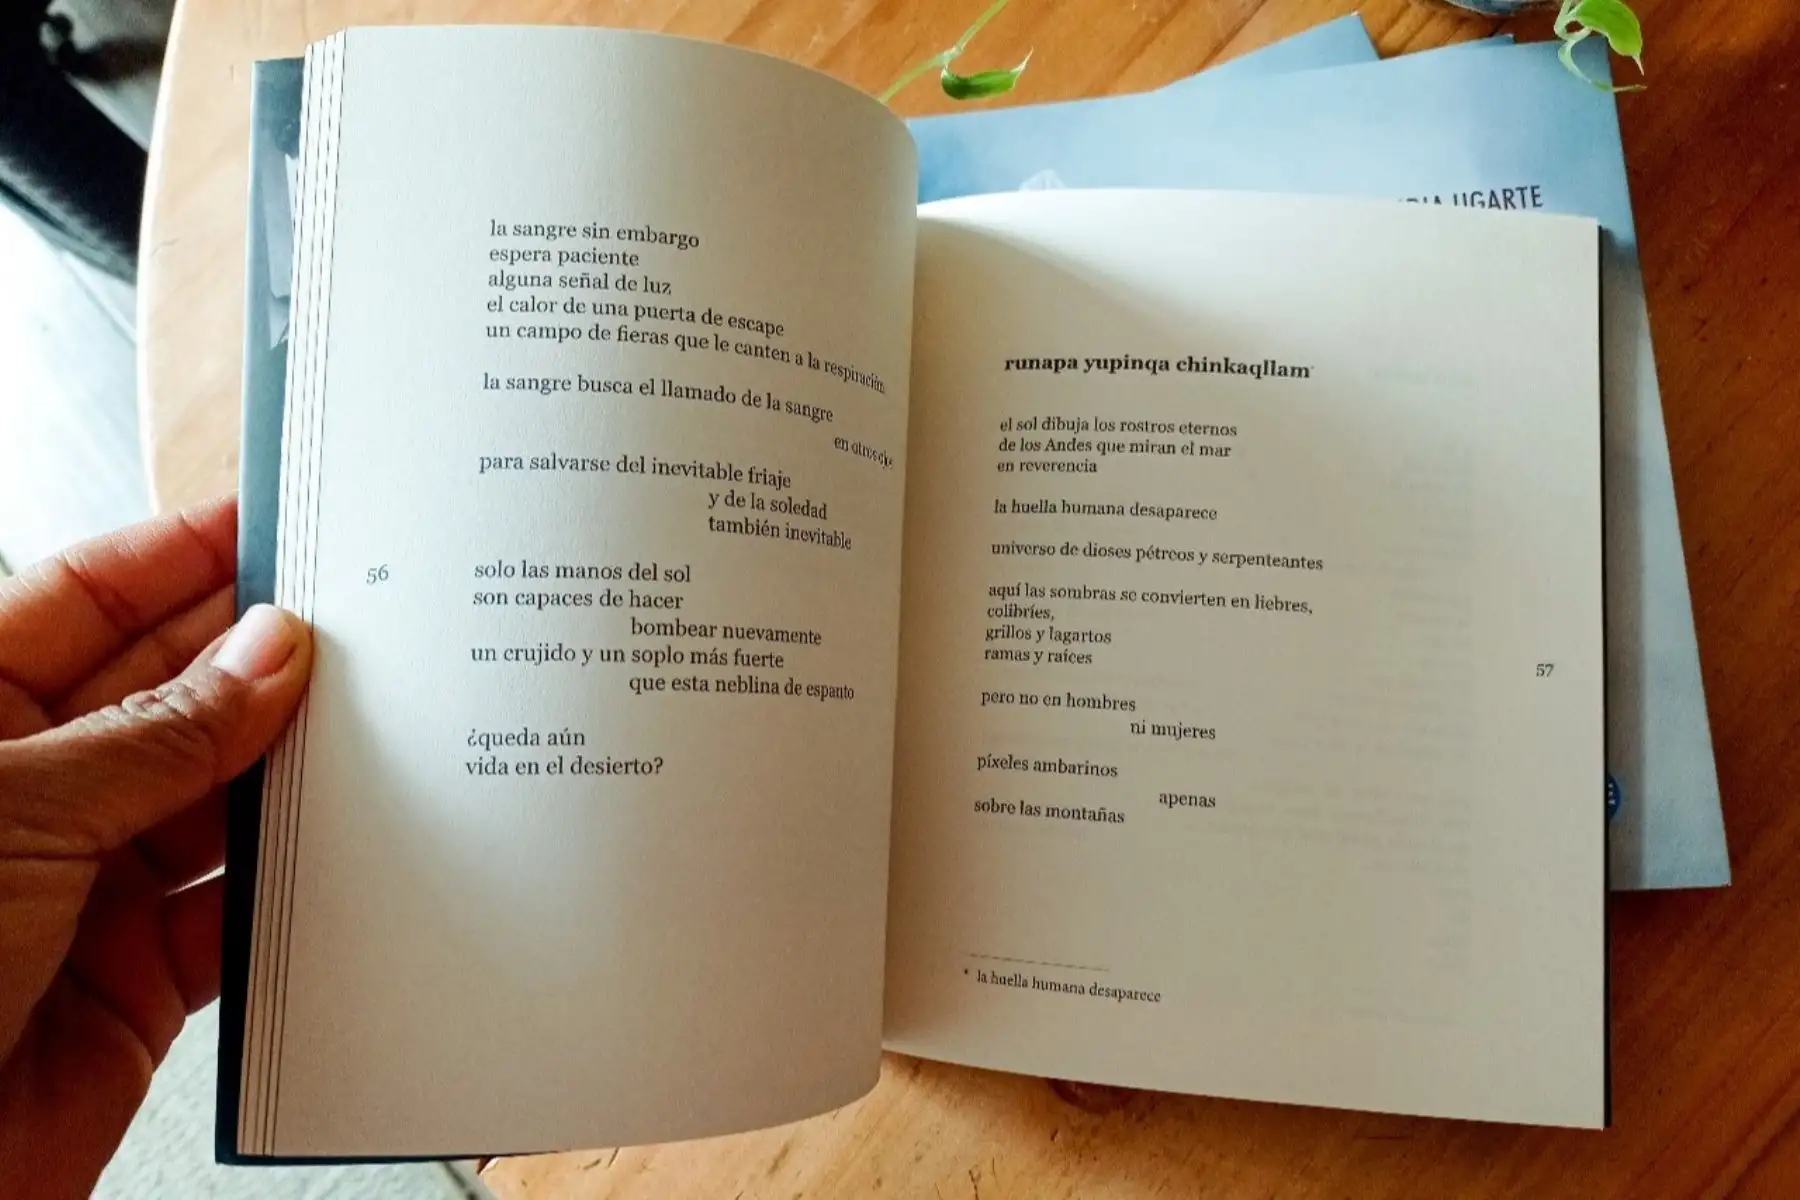 la sangre sin embargo
espera paciente
alguna señal de luz
el calor de una puerta de escape
un campo de fieras que le canten a la respiración
la sangre busca el llamado de la sangre
en otros
para salvarse del inevitable friaje
y de la soledad
también inevitable
solo las manos del sol
son capaces de hacer
bombear nuevamente
un crujido y un soplo más fuerte
que esta neblina de espanto
¿queda aún
vida en el desierto?
56
UGARTE
runapa yupinqa chinkaqllam*
el sol dibuja los rostros eternos
de los Andes que miran el mar
en reverencia
la huella humana desaparece
universo de dioses pétreos y serpenteantes
aquí las sombras se convierten en liebres,
colibríes,
grillos y lagartos
ramas y raíces
pero no en hombres
ni mujeres
píxeles ambarinos
apenas
sobre las montañas
57
* la huella humana desaparece